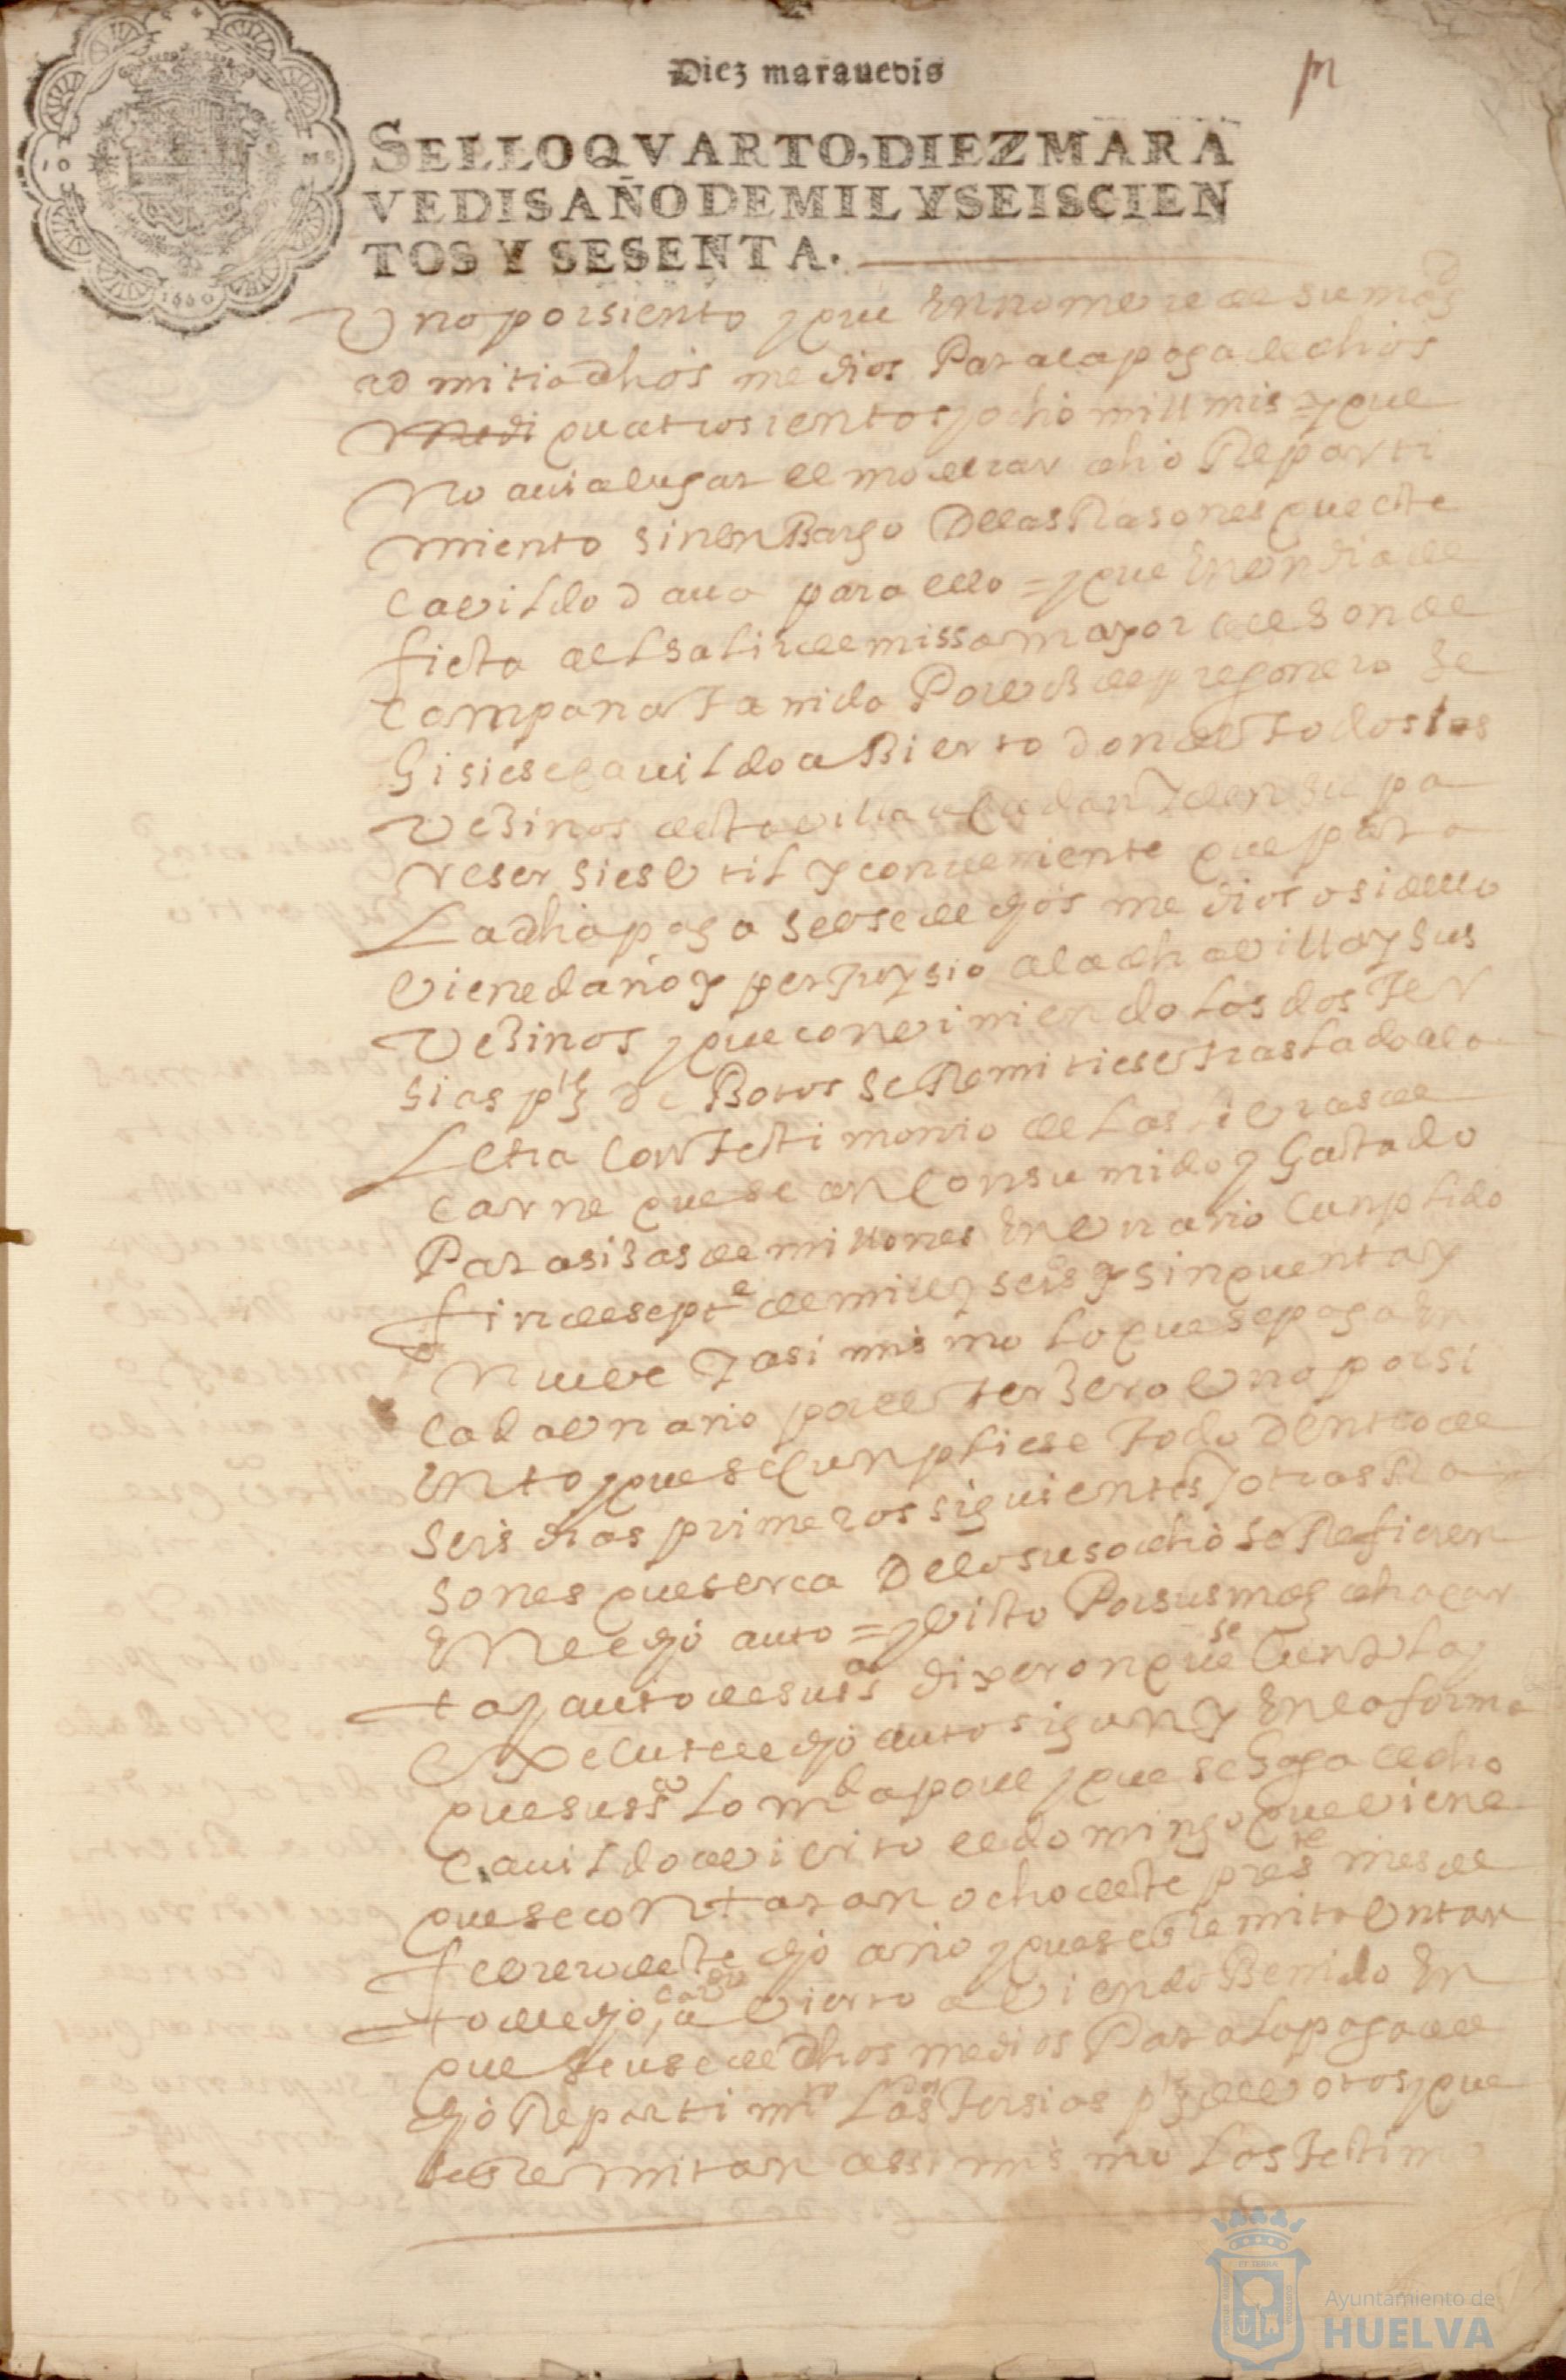 Diez marauedis
SELLO QVARTO, DIEZ MARA
VEDIS AÑO DE MIL Y SEISCIEN
TOS Y SESENTA.
1660
Uno por siento y que en nombre de su magd
admitia dhos medios Para la paga de dhos
quatrosientos y ocho mill mrs = y que
No avia lugar el moderar dho Reparti
miento sin enbargo De las Rasones que este
Cavildo dava para ello = y que en un dia de
fiesta al salir de missa mayor a el son de
Campana tanida Por vos de pregonero se
hisiese cavildo aBierto donde todos los
vezinos desta villa acudan y den su pa
reser si es util y conveniente que para
La dha paga se use de dhos medios o si dello
viene daño y perjuysio a la dha villa y sus
vezinos y que conviniendo las dos Ter
sias ptes de Botos se Remitiese traslado a la
Letra con testimonio de las libras de
carne que se an consumido y gastado
Para sisas de millones en un año cunplido
fin de septe de mill y seisos y sinquenta y
Nueve y asi mismo lo que se paga en
cada un año por el terzero uno por si
ento y que se cunpliese todo Dentro de
seis dias primeros siguientes y otras Ra
sones que serca De lo susodho se Refieren
en el dho auto = y visto Por sus mds dha car
ta y auto de su sa dixeron que se cunpla y
Execute el dho auto sigun y en la forma
que su sa lo mda por el y que se haga el dho
cavildo avierto el domingo que viene
que se contaran ocho deste preste mes de
febrero deste dho año y que se le mita un tan
to del dho cavdo avierto aviendo Benido en
que se use de dhos medios Para la paga de
dho Repartimto Las dos Tersias ptes de votos y que
se le rremitan assimismo los testimo
Ayuntamiento de
HUELVA